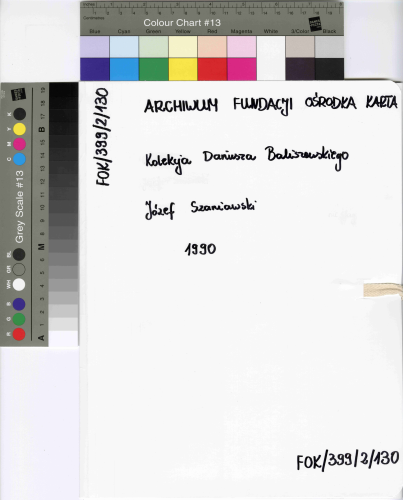 Colour Chart #13
Blue Cyan Green Yellow Red Magenta White 3/Color Black
Grey Scale #13
FOK/399/2/130
ARCHIWUM FUNDACJI OŚRODKA KARTA
Kolekcja Dariusza Baliszewskiego
Józef Szaniawski
1990
FOK/399/2/130